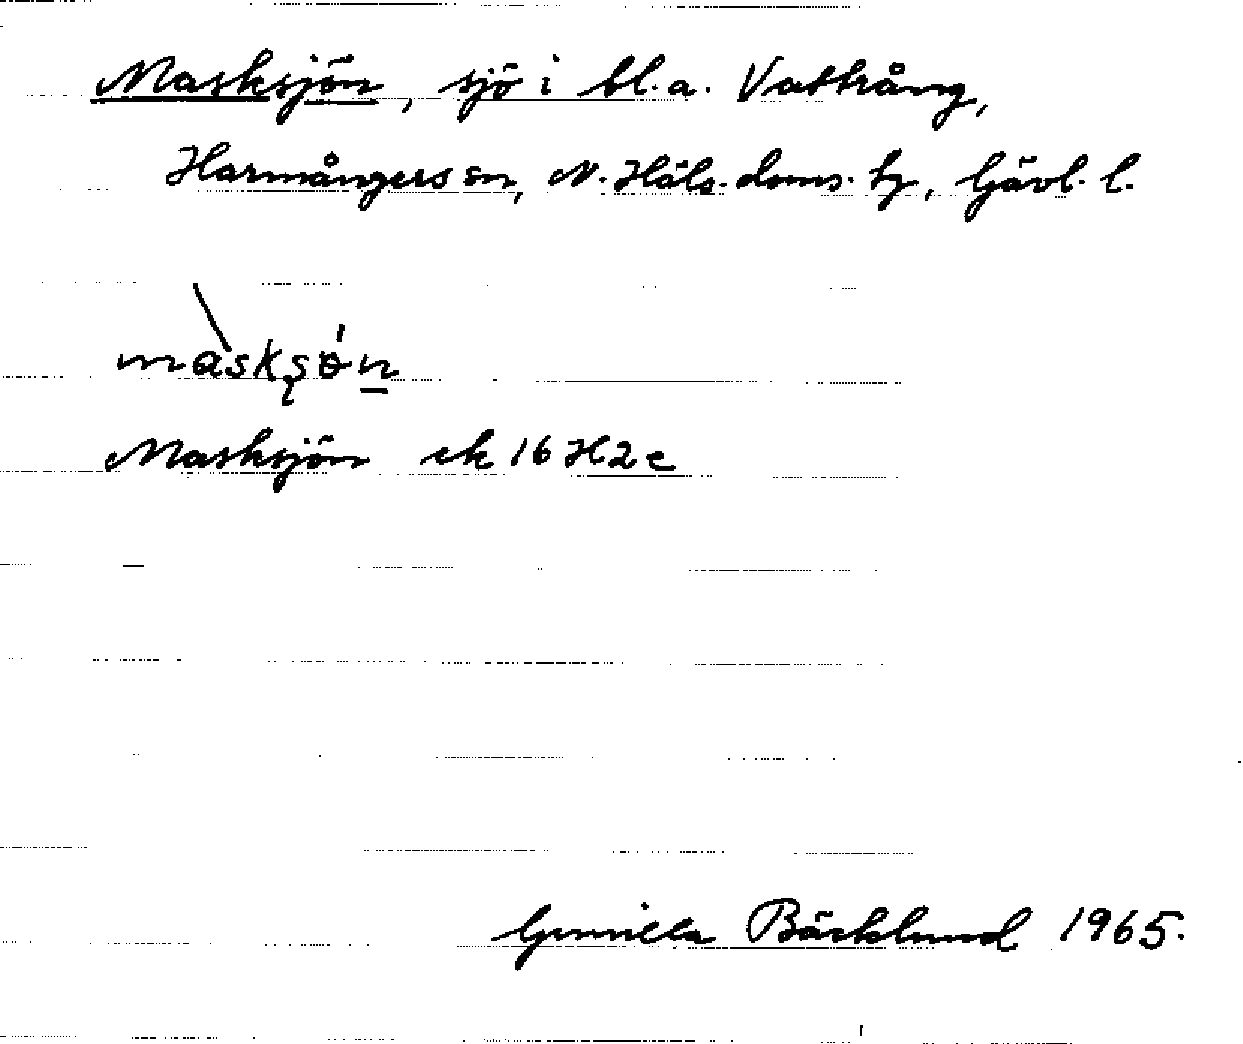 Masksjön, sjö i bl.a. Vattrång,
Harmångers sn, N. Häls. doms. tg, Gävl. l.
màskʂǿn̲
Masksjön ek 16 H2c
Gunilla Bäcklund 1965.